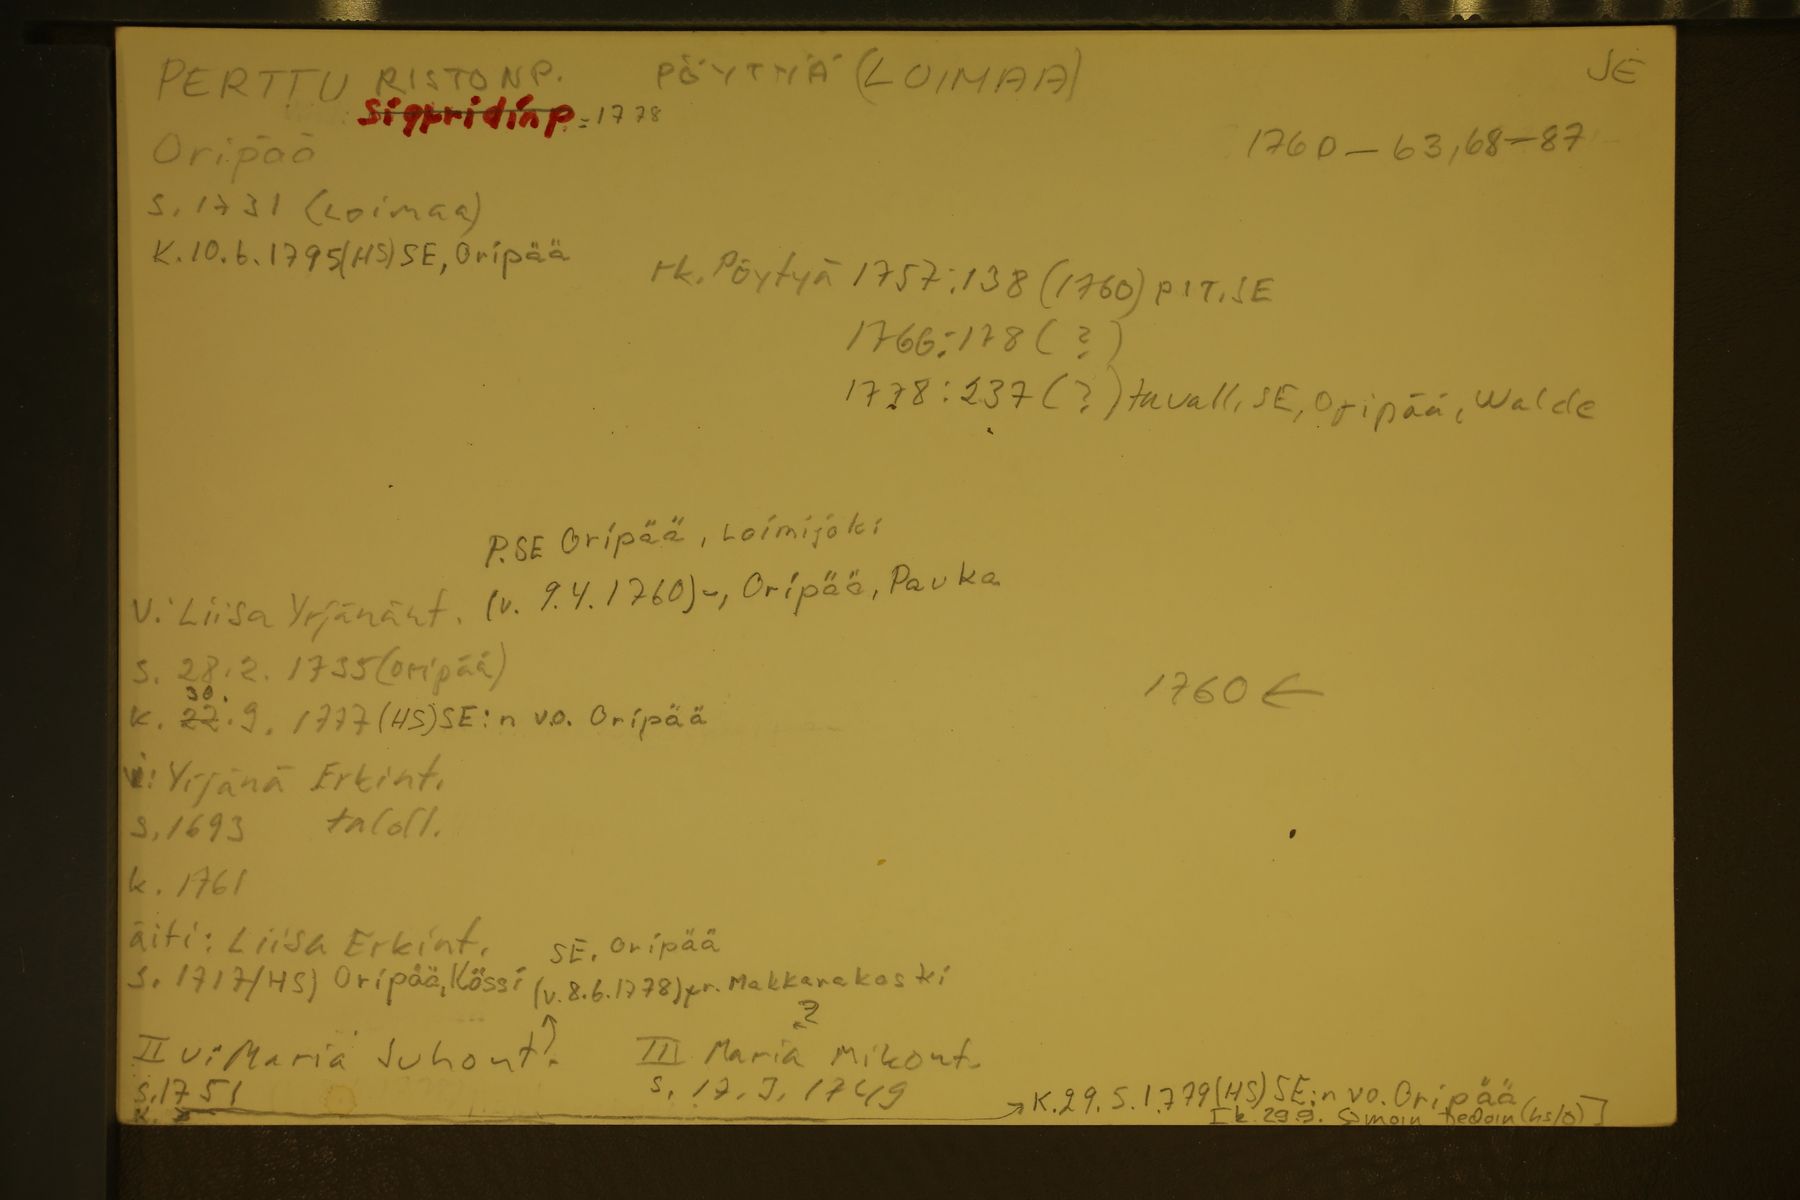 PERTTU RISTONP. PÖYTYÄ (LOIMAA) JE
Sigfridinp. = 1778
Oripää 1760 – 63, 68 – 87
s. 1731 (Loimaa)
K. 10.6.1795 (HS) SE, Oripää
rk. Pöytyä 1757:138 (1760) PIT. SE
1766:178 (?)
1778:237 (?) tavall. SE, Oripää, Walde
P. SE Oripää, Loimijoki
V: Liisa Yrjänänt. (v. 9.4.1760) –, Oripää, Pavka
s. 28.2.1735 (Oripää)
1760 ←
30.
k. 22.9.1777 (HS) SE:n vo. Oripää
i: Yrjänä Erkint.
s. 1693 taloll.
k. 1761
äiti: Liisa Erkint. SE, Oripää
s. 1717 (HS) Oripää, Kössi (v. 8.6.1778) pr. Makkarakoski
?
II v: Maria Juhont. III Maria Mikont.
s. 1751 s. 17.3.1749
K. → K. 29.5.1779 (HS) SE:n vo. Oripää
[k. 29.9. Samoin tiedoin (hs/ö)]